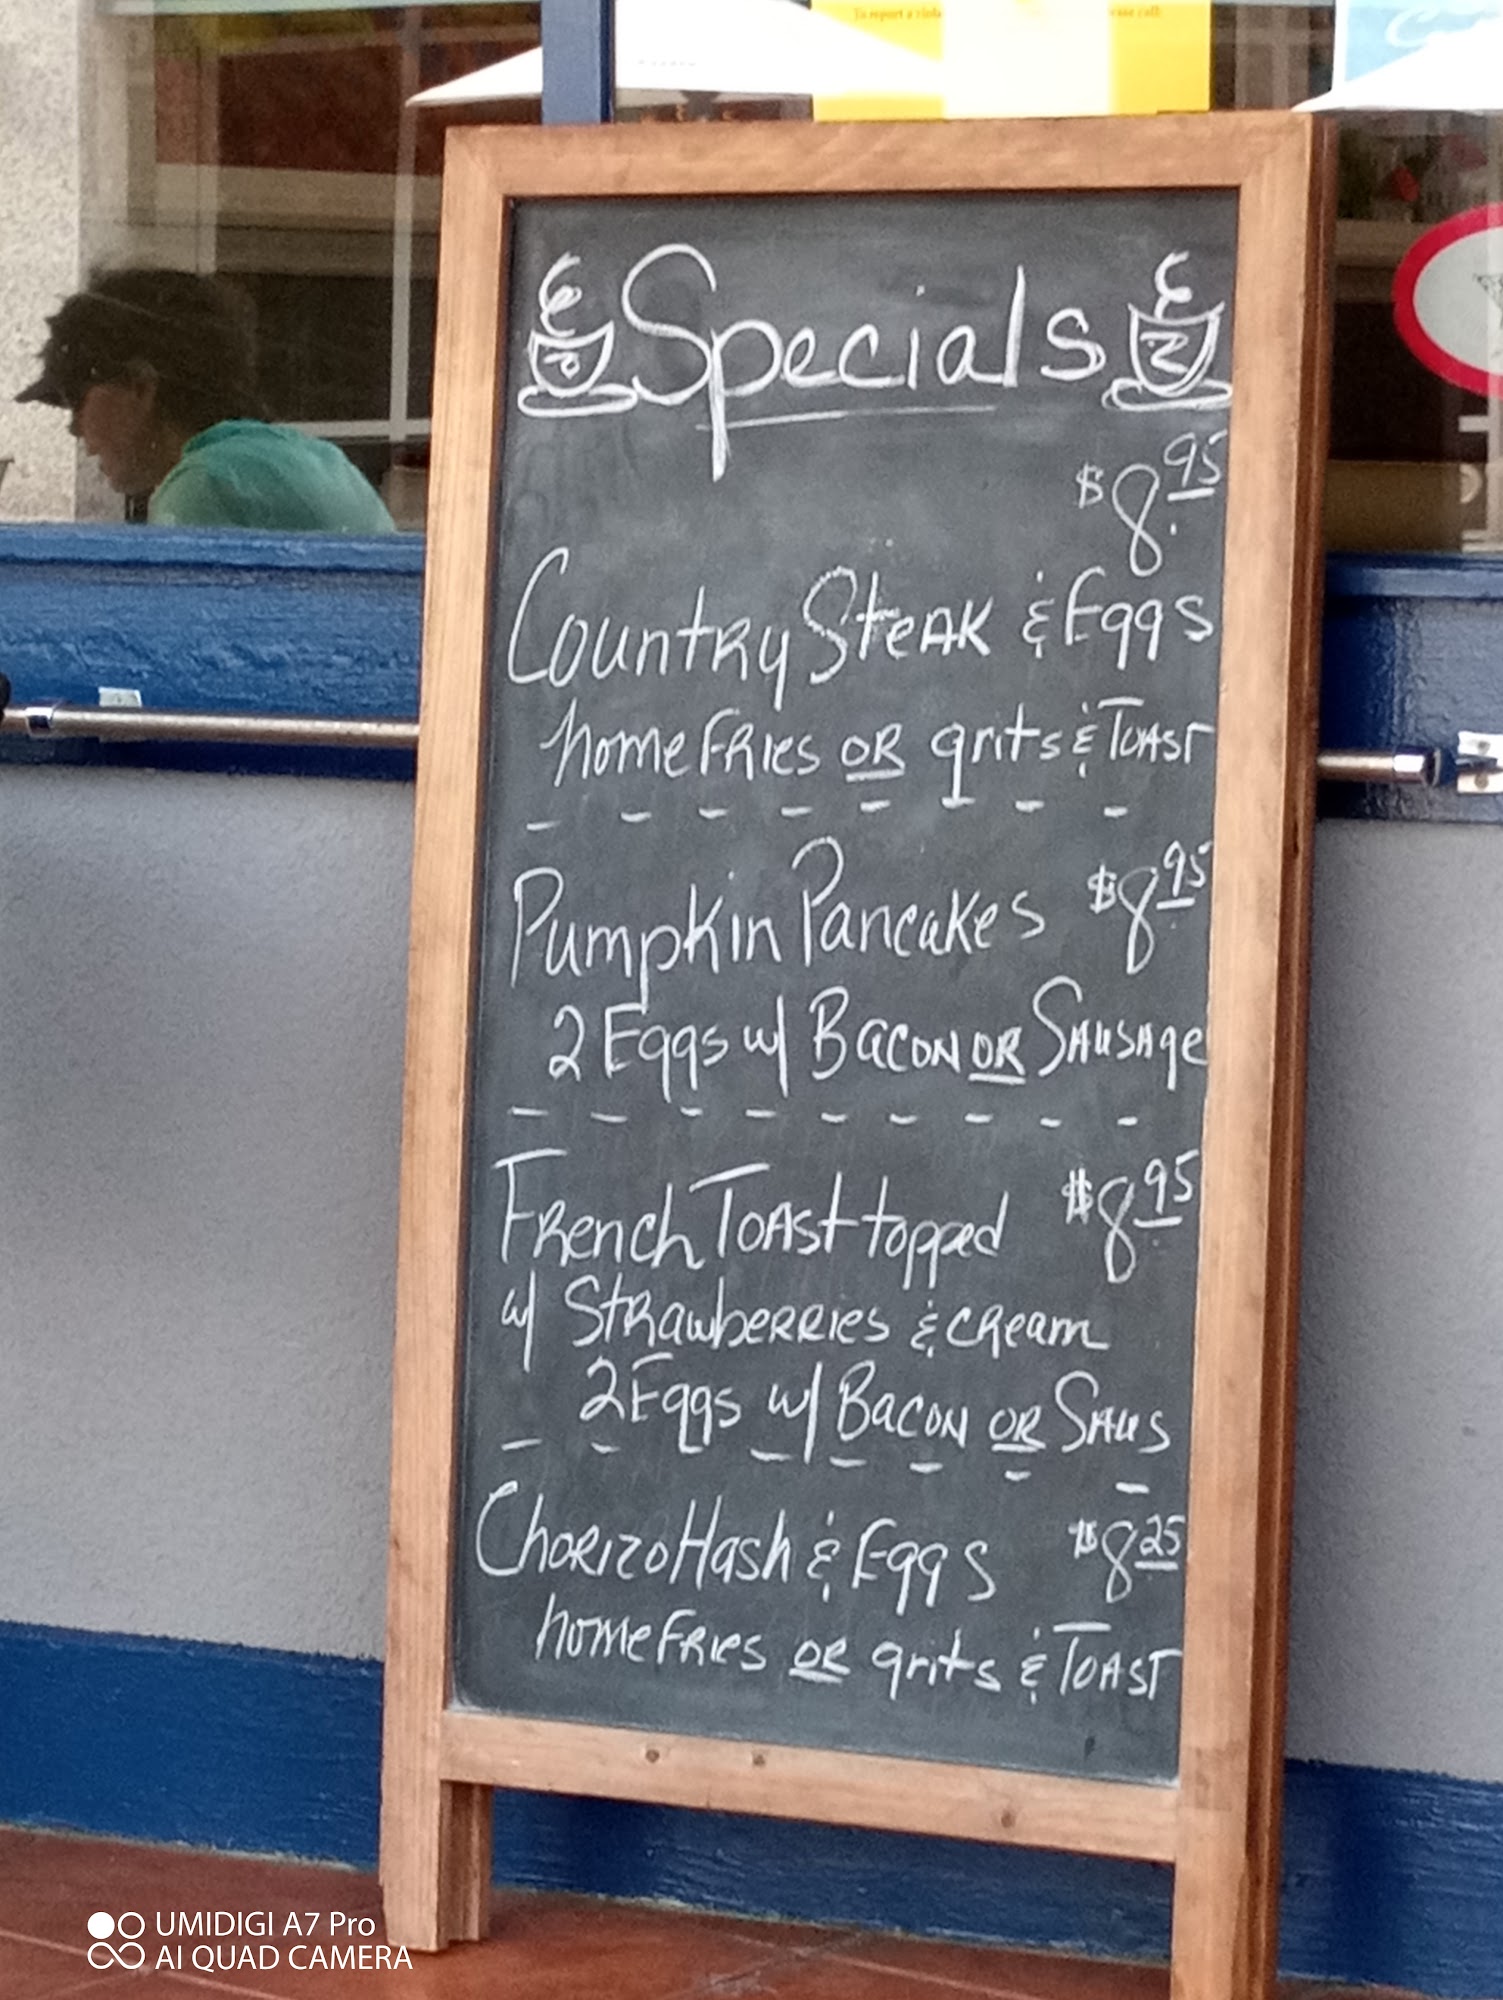 To report a
case call:
Specials
$8.95
Country Steak & Eggs
home Fries OR grits & Toast
Pumpkin Pancakes $8.95
2 Eggs w/ Bacon OR Sausage
French Toast topped $8.95
w/ Strawberries & cream
2 Eggs w/ Bacon OR Saus
Chorizo Hash & Eggs $8.25
home Fries OR grits & Toast
UMIDIGI A7 Pro
AI QUAD CAMERA